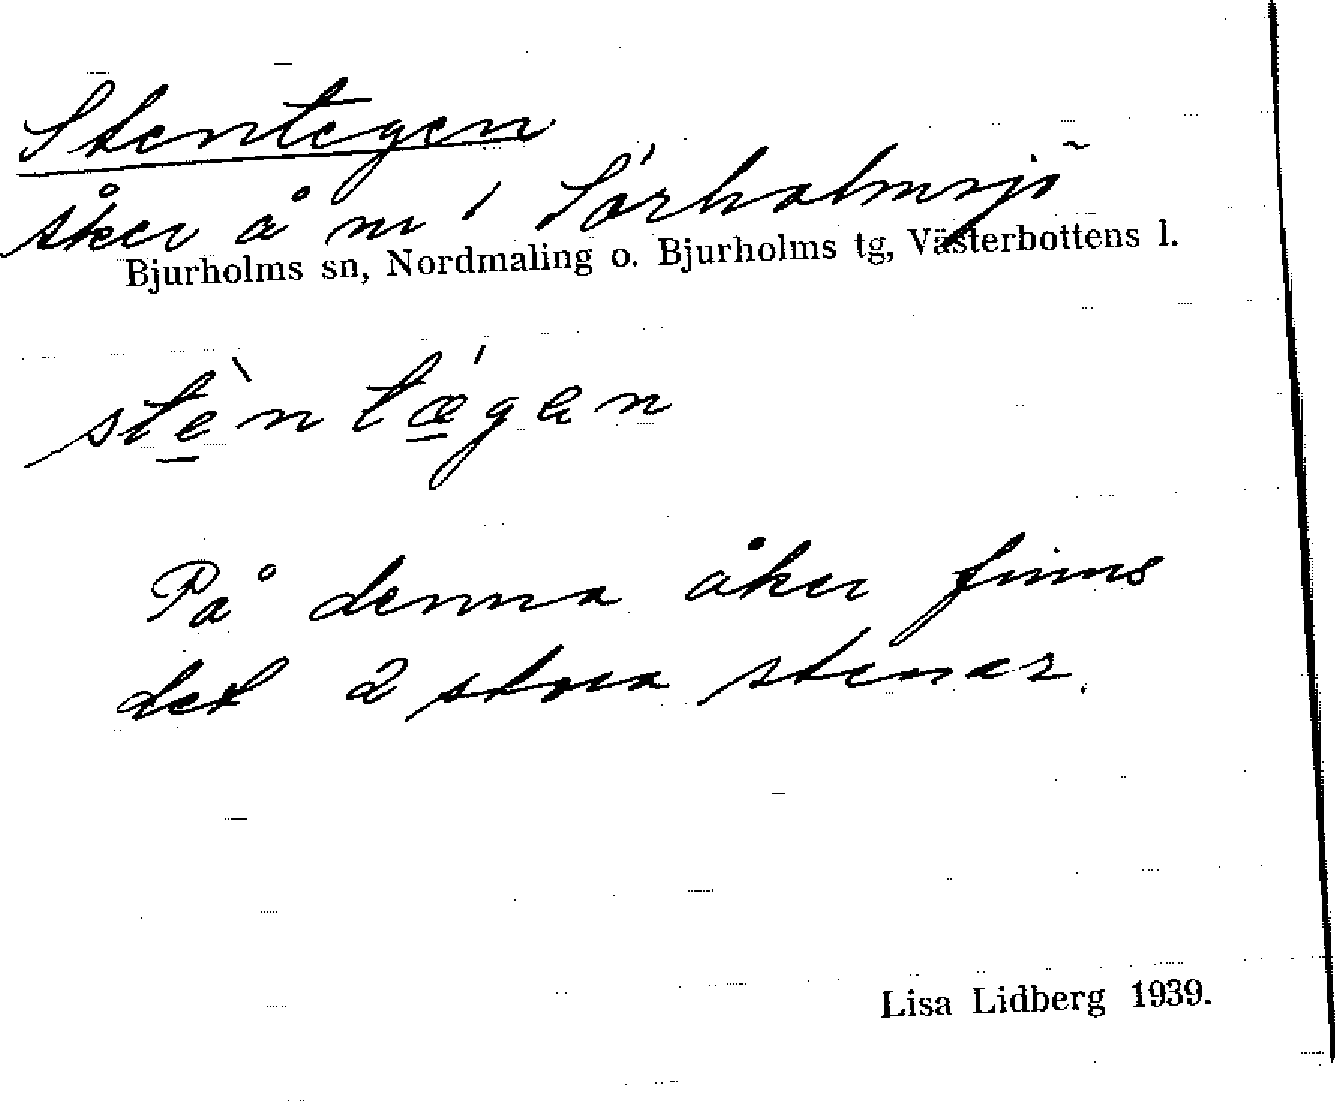 Stentegen
åker å nr 1 Sörholmsjö
Bjurholms sn, Nordmaling o. Bjurholms tg, Västerbottens l.
stè̱n tǽ̱gen
På denna åker finns
det 2 stora stenar.
Lisa Lidberg 1939.